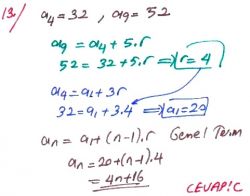 13) a₄=32 , a₉=52
a₉ = a₄ + 5.r
52 = 32 + 5.r ⟹ r = 4
a₄ = a₁ + 3r
32 = a₁ + 3.4 ⟹ a₁ = 20
aₙ = a₁ + (n-1).r Genel Term
aₙ = 20 + (n-1).4
= 4n+16
CEVAP:C